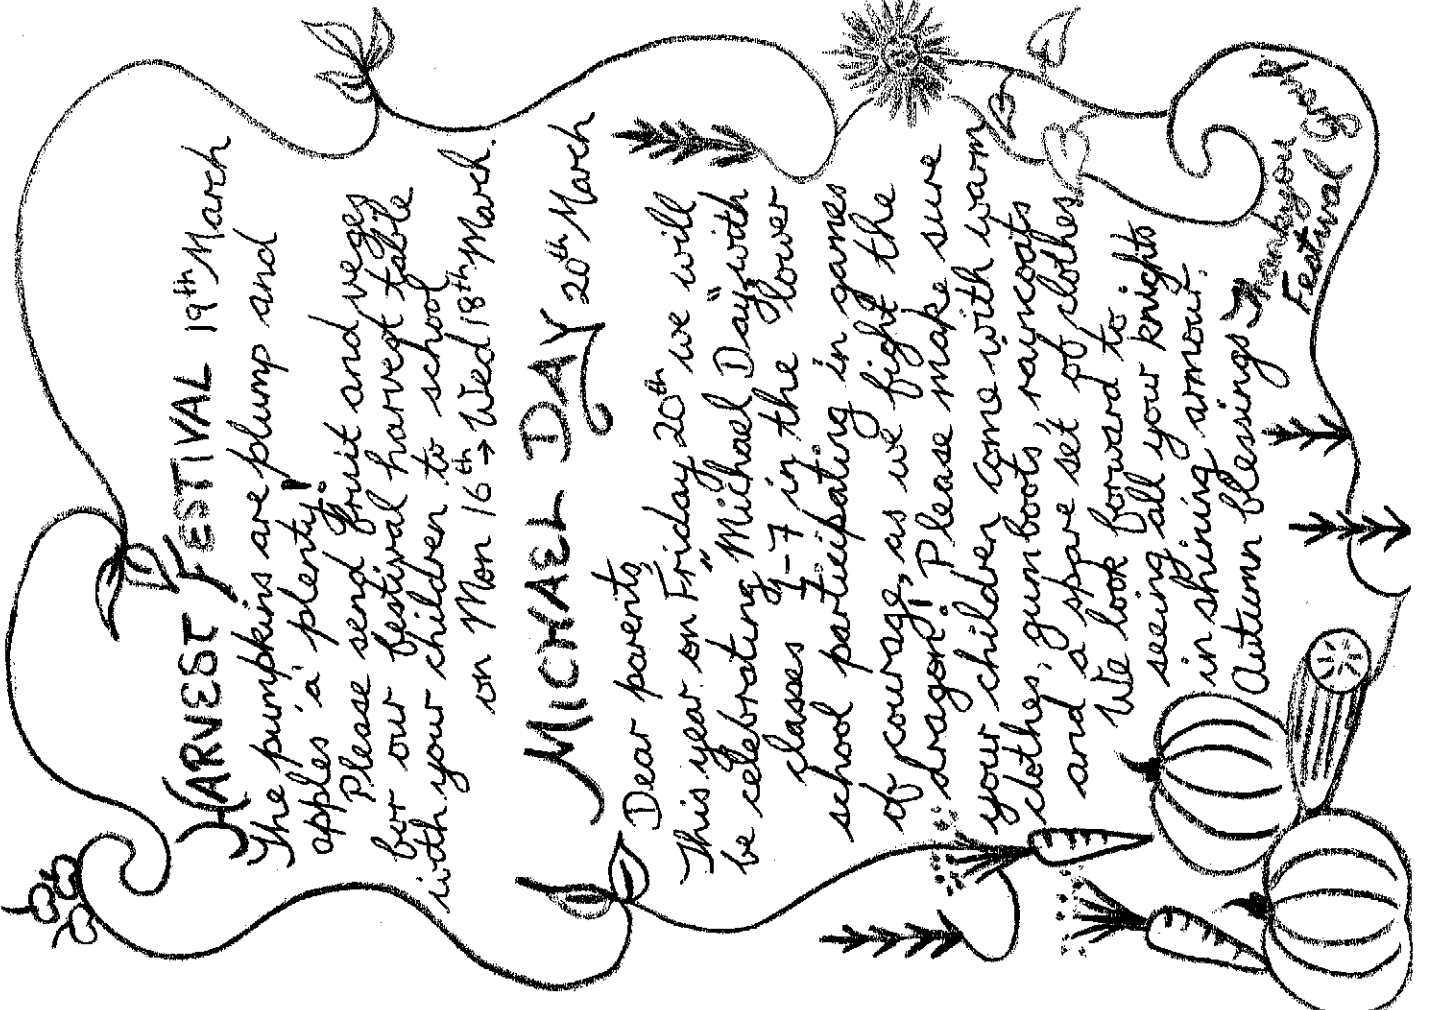 HARVEST FESTIVAL 19th March
The pumpkins are plump and
apples 'a' plenty!
Please send fruit and veges
for our festival harvest table
with your children to school
on Mon 16th → Wed 18th March.
MICHAEL DAY 20th March
Dear parents,
This year on Friday 20th we will
be celebrating "Michael Day" with
classes 1-7 in the lower
school participating in games
of courage, as we fight the
dragon! Please make sure
your children come with warm
clothes, gumboots, raincoats
and a spare set of clothes.
We look forward to
seeing all your knights
in shining armour.
Autumn blessings
Thankyou
Festival Group